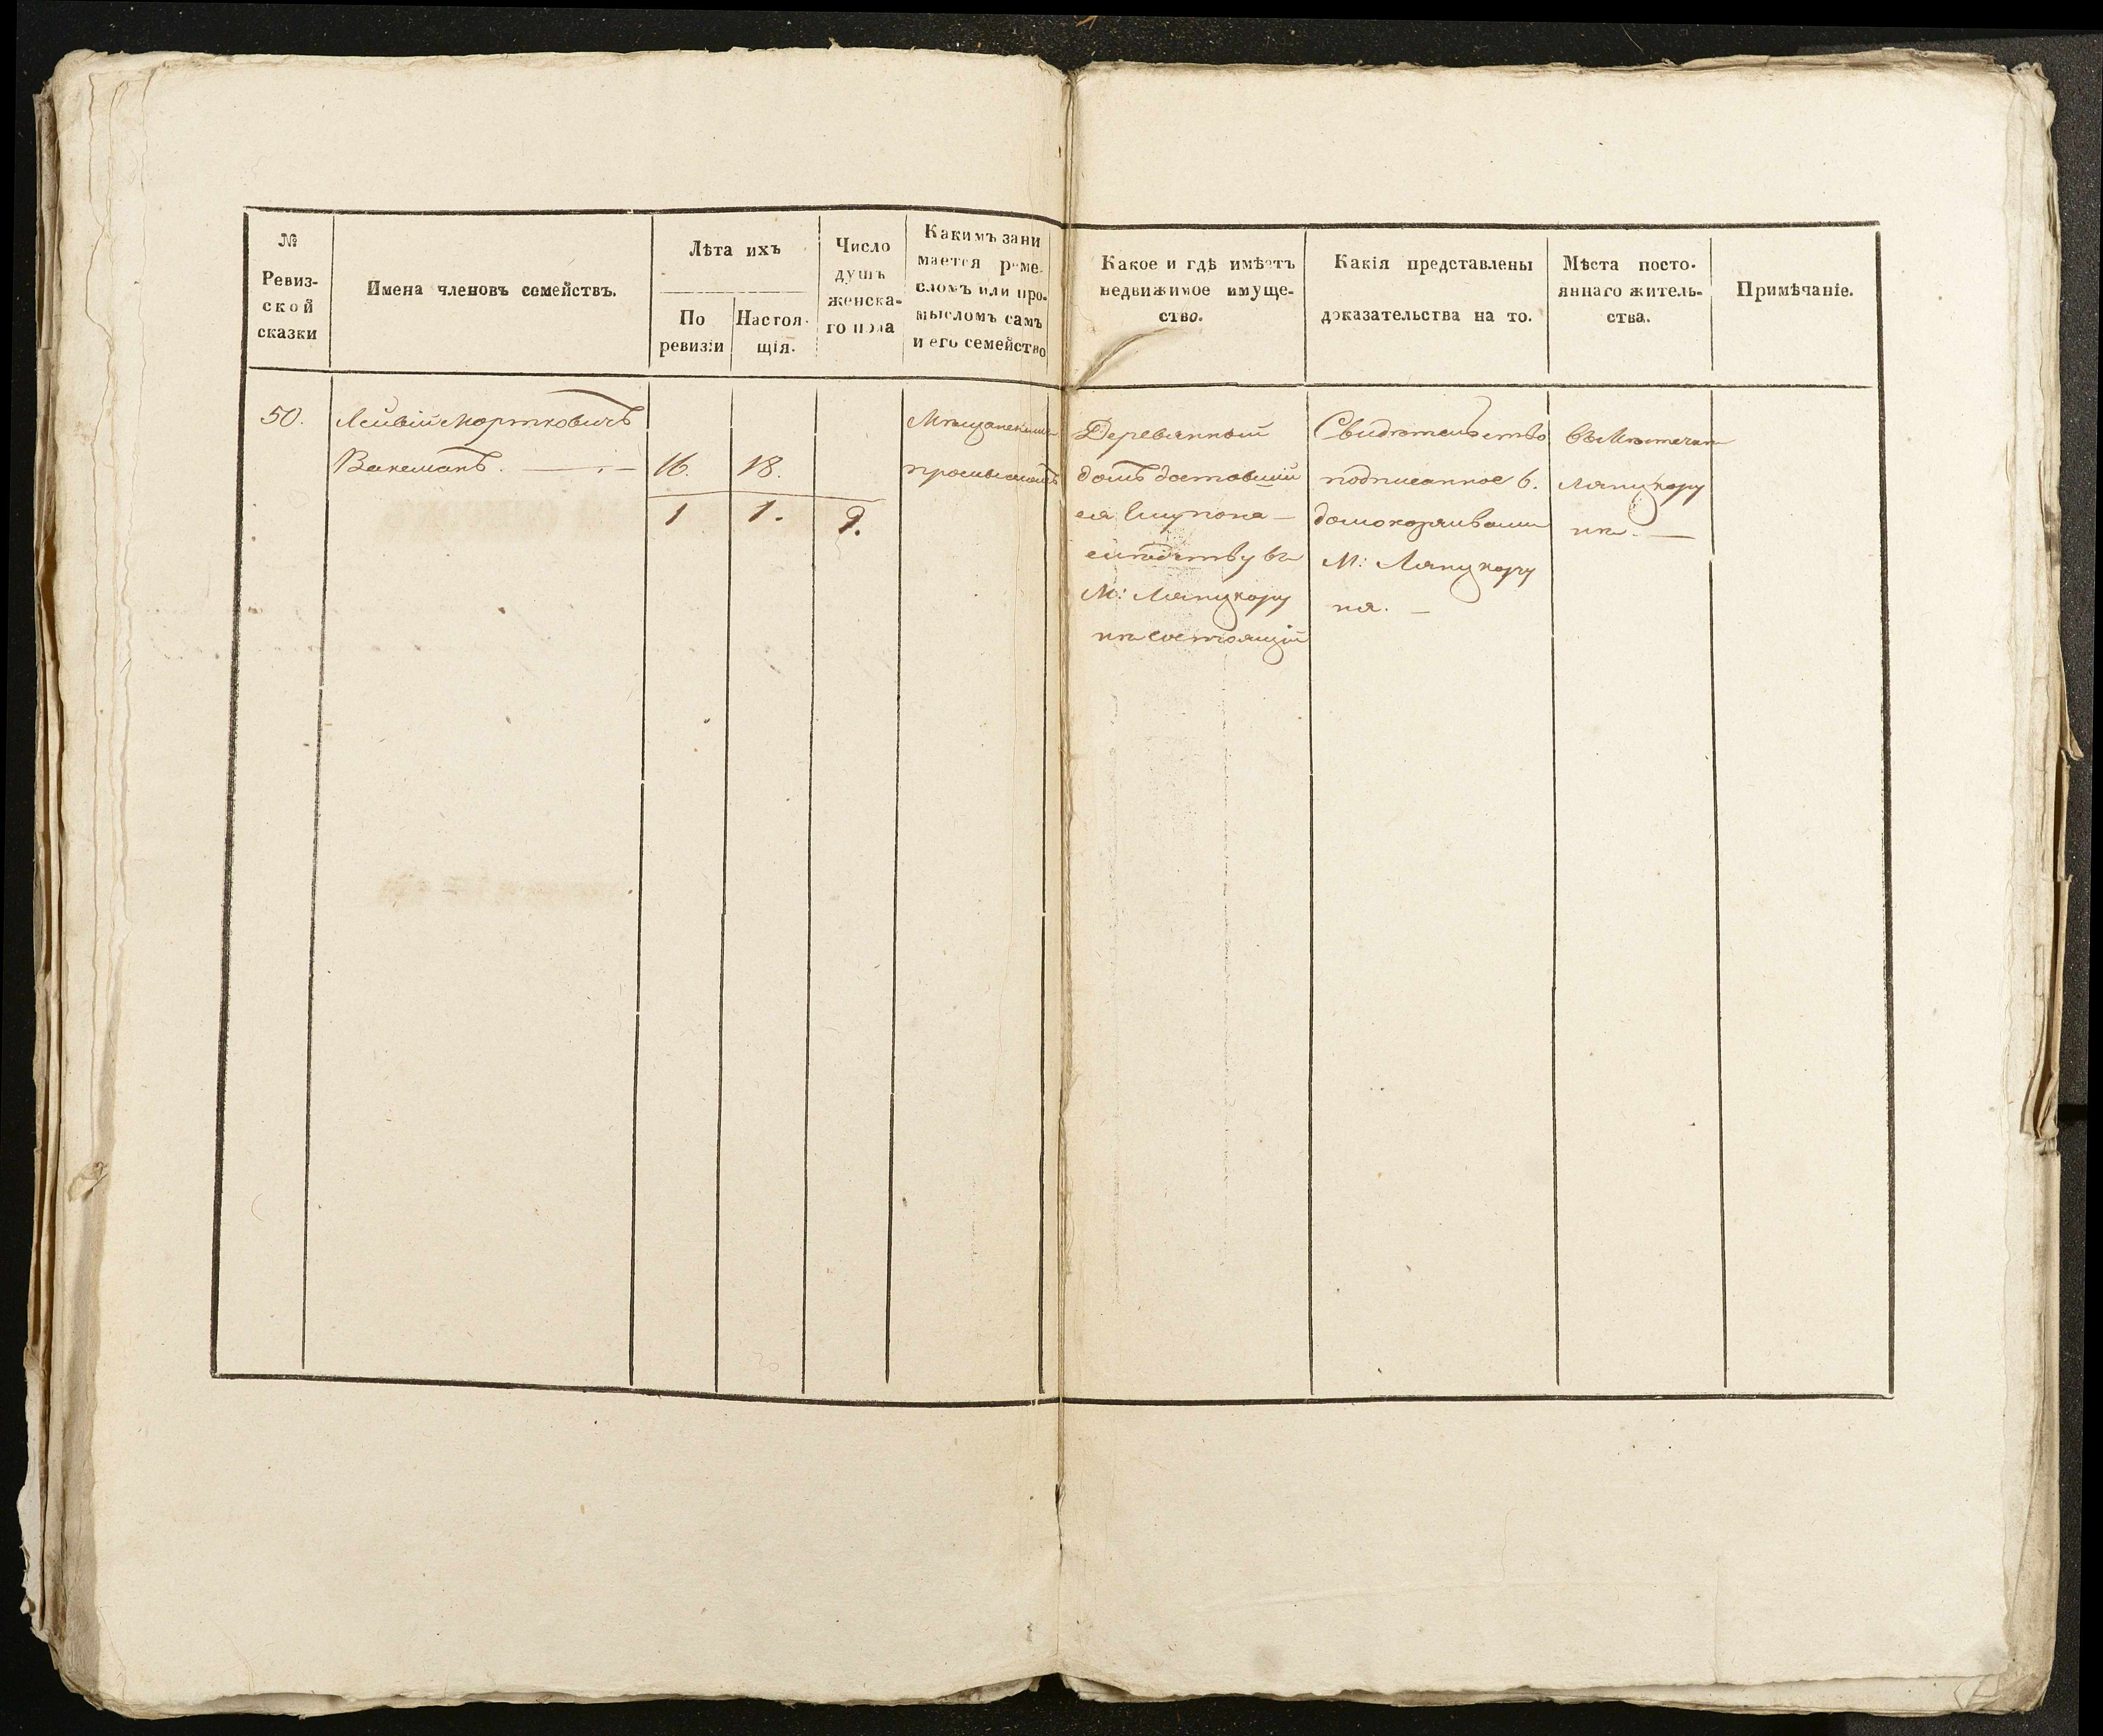 №
Ревиз-
ской
сказки
Имена членовъ семействъ.
Лѣта ихъ
По
ревизіи
Настоя-
щія.
Число
душъ
женска-
го пола
Какимъ зани
мается реме-
сломъ или про-
мысломъ самъ
и его семейство
Какое и гдѣ имѣетъ
недвижимое имуще-
ство.
Какія представлены
доказательства на то.
Мѣста посто-
яннаго житель-
ства.
Примѣчаніе.
50.
Лейвій Мортковичъ
Вакеманъ.
16.
18.
1
1.
Мѣщанскимъ
промысломъ
Деревянный
домъ доставшій
ся Ему по на
слѣдству въ
М: Ляпцкору
нѣ состоящій
Свидѣтельство
подписанное 6.
домохозяивами
М: Ляпцкору
ня.
въ Мѣстечкѣ
Ляпцкору
нѣ